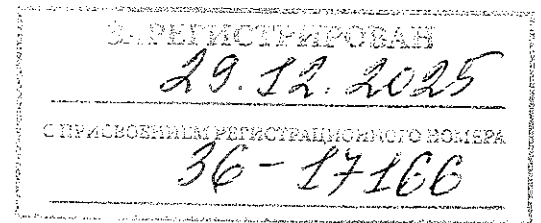 ЗАРЕГИСТРИРОВАН
29.12.2025
С ПРИСВОЕНИЕМ РЕГИСТРАЦИОННОГО НОМЕРА
36-17166